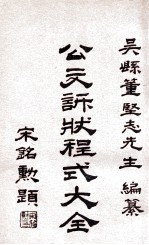 吳縣董堅志先生編纂
公文訴狀程式大全
宋銘勳題